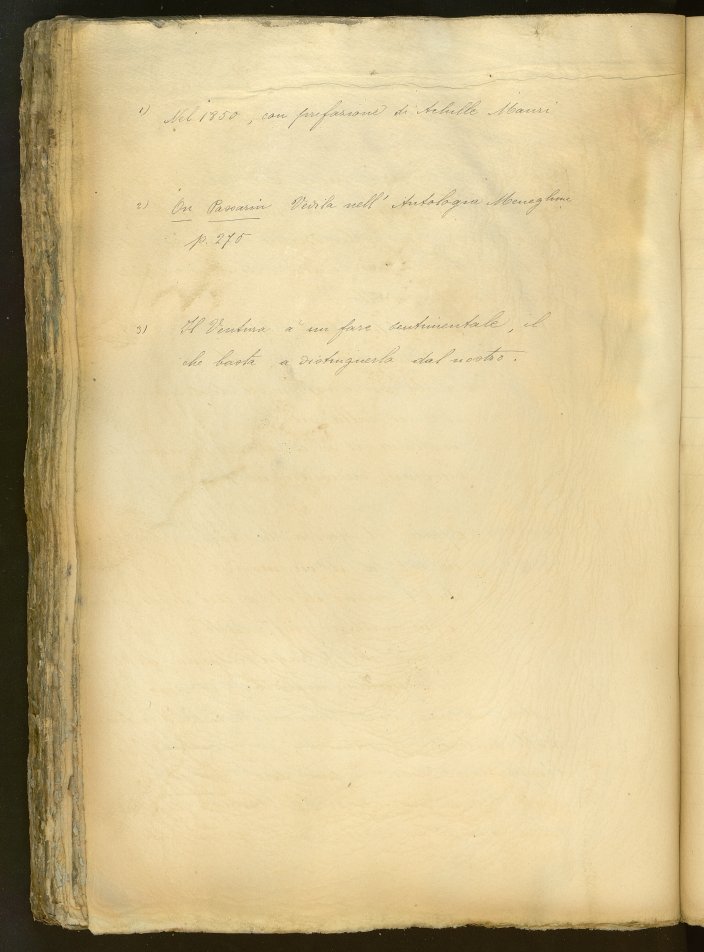 1) Nel 1850, con prefazione di Achille Mauri
2) On Passarin Vedila nell' Antologia Meneghina
p. 275
3) Il Ventura à un fare sentimentale, il
che basta a distinguerlo dal nostro.